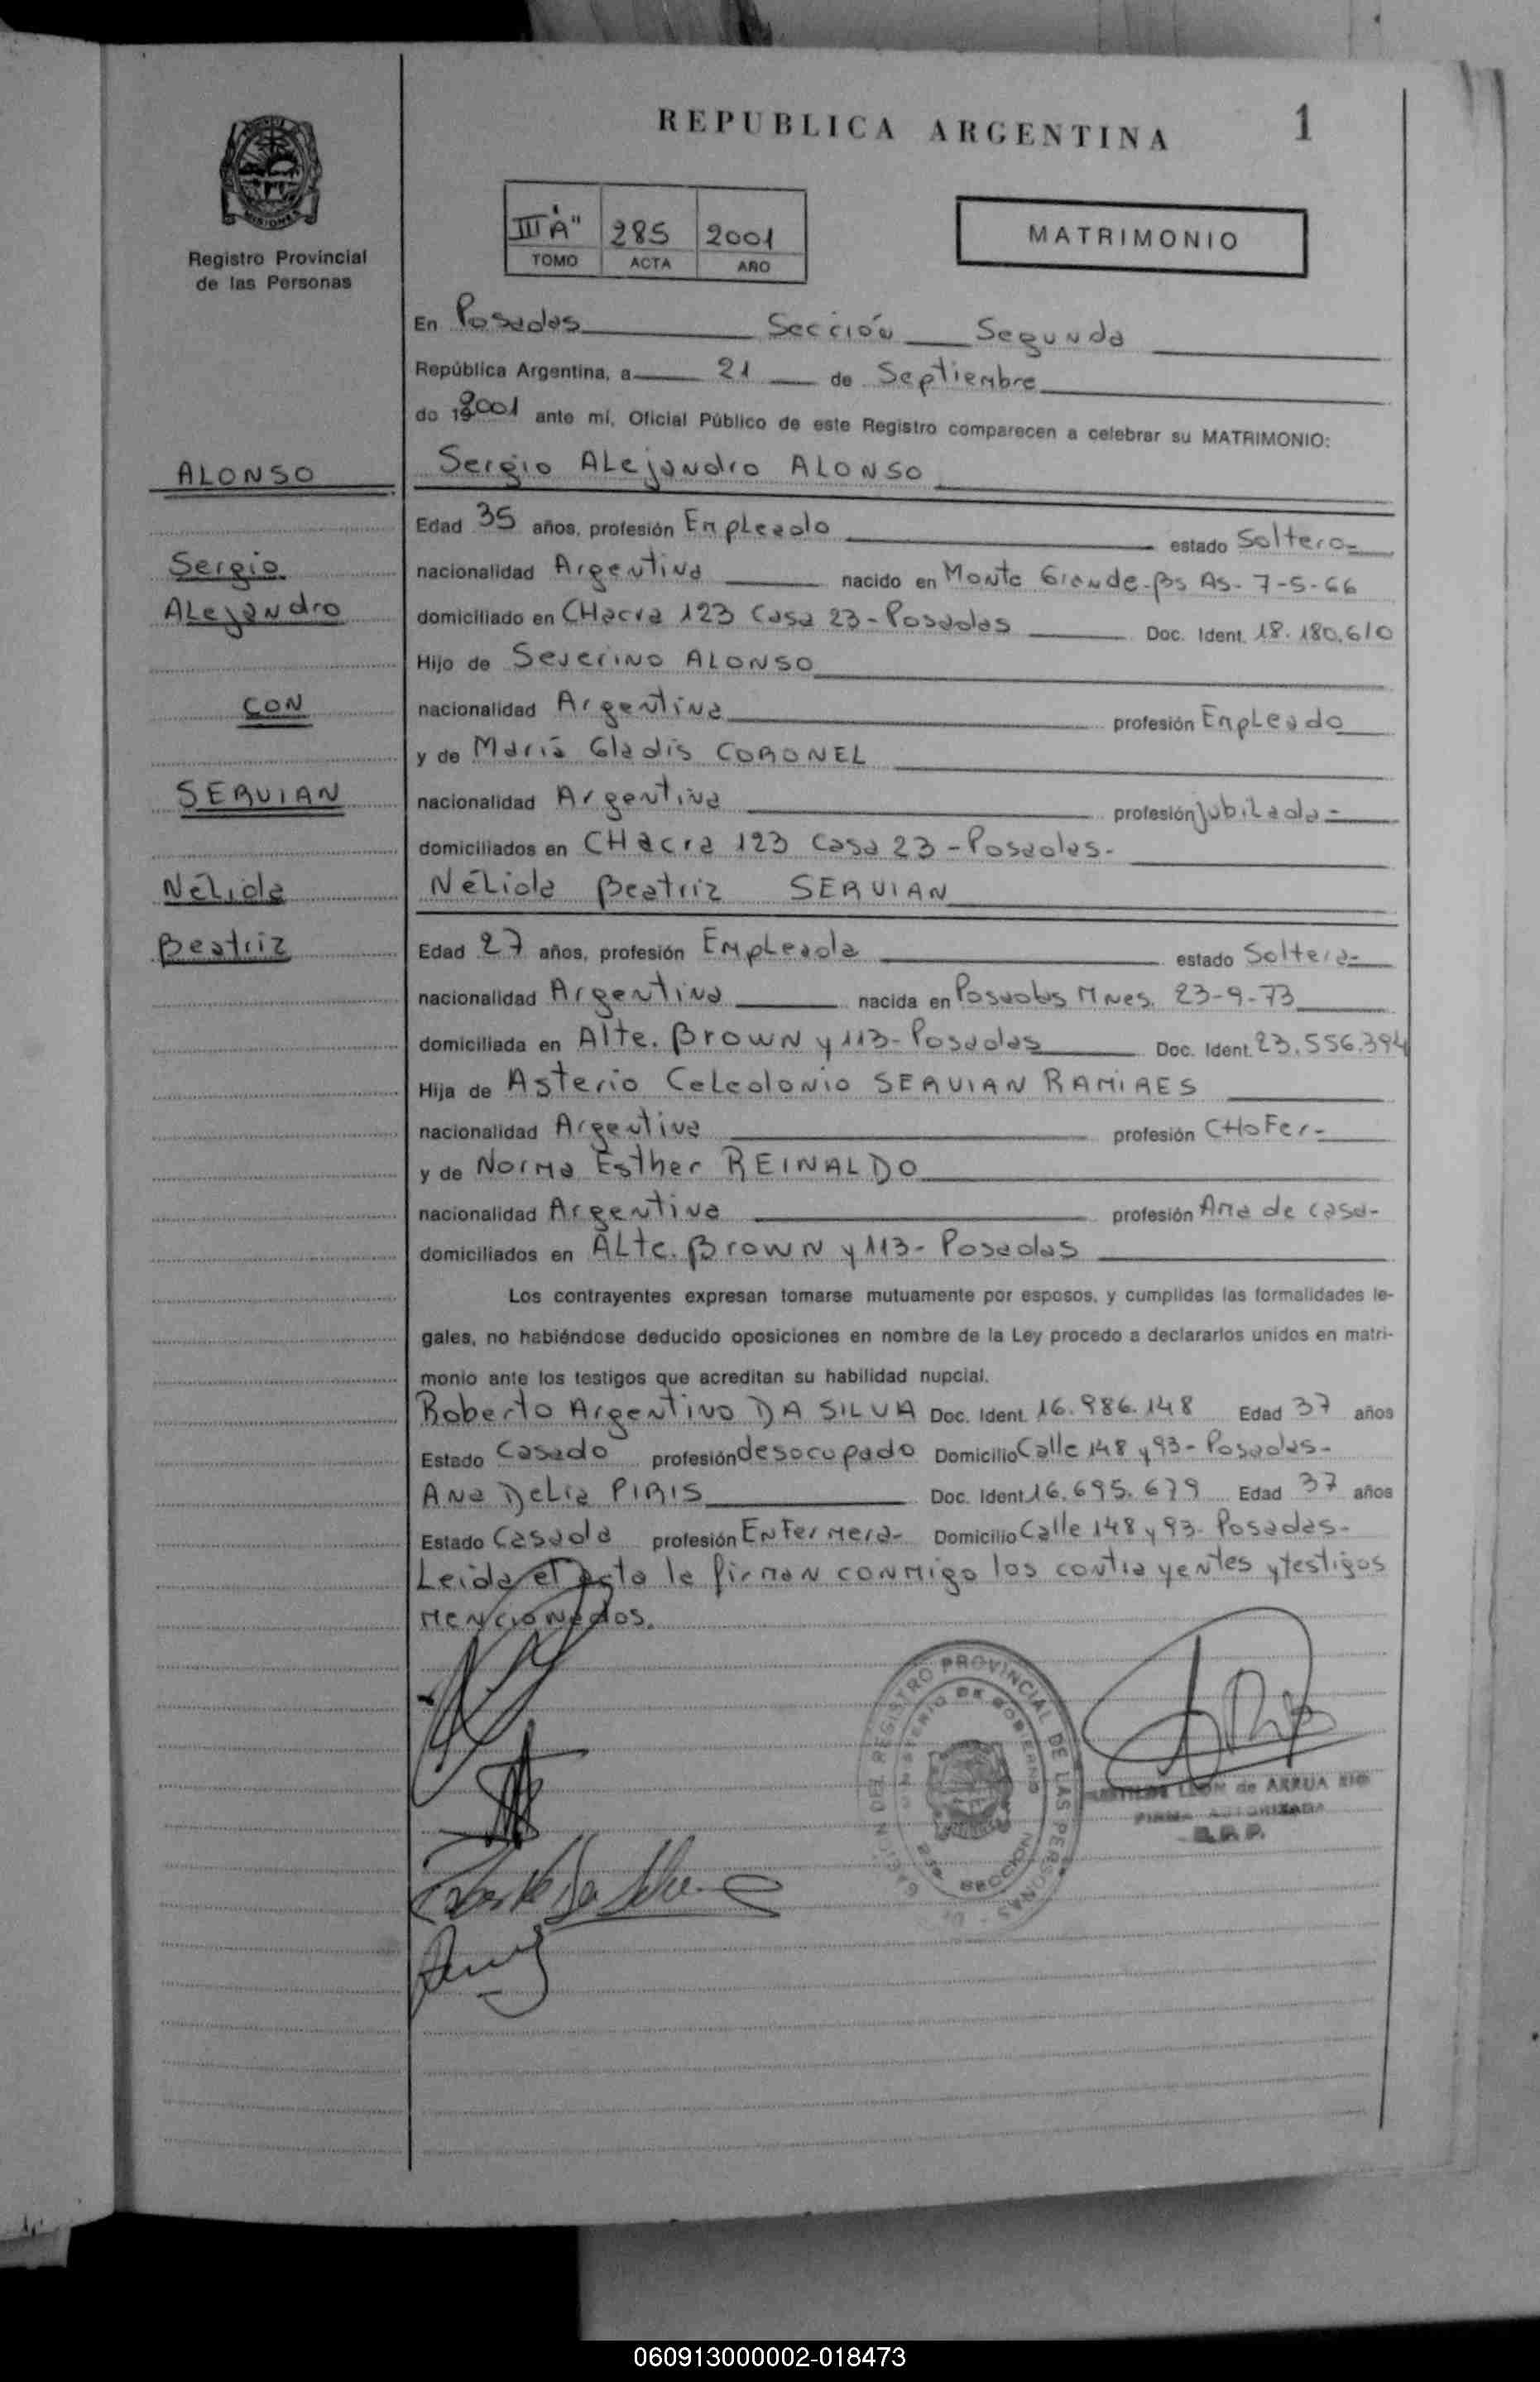 REPUBLICA ARGENTINA
1
MISIONES
Registro Provincial
de las Personas
III "A" 285 2001
TOMO ACTA AÑO
MATRIMONIO
En Posadas Sección Segunda
República Argentina, a 21 de Septiembre
de 192001 ante mí, Oficial Público de este Registro comparecen a celebrar su MATRIMONIO:
ALONSO
Sergio Alejandro ALONSO
Edad 35 años, profesión Empleado estado Soltero-
Sergio
nacionalidad Argentina nacido en Monte Grande-Bs As- 7-5-66
Alejandro
domiciliado en CHacra 123 Casa 23-Posadas Doc. Ident. 18.180.610
Hijo de Severino ALONSO
CON
nacionalidad Argentina profesión Empleado
y de María Gladis CORONEL
SERVIAN
nacionalidad Argentina profesión jubilada-
domiciliados en CHacra 123 Casa 23-Posadas-
Nélida
Nélida Beatriz SERVIAN
Beatriz
Edad 27 años, profesión Empleada estado Soltera-
nacionalidad Argentina nacida en Posadas Mnes. 23-9-73
domiciliada en Alte. Brown y 113-Posadas Doc. Ident. 23.556.394
Hija de Asterio Celedonio SERVIAN RAMIRES
nacionalidad Argentina profesión CHoFer-
y de Norma Esther REINALDO
nacionalidad Argentina profesión Ama de casa-
domiciliados en ALte. Brown y 113- Posadas
Los contrayentes expresan tomarse mutuamente por esposos, y cumplidas las formalidades le-
gales, no habiéndose deducido oposiciones en nombre de la Ley procedo a declararlos unidos en matri-
monio ante los testigos que acreditan su habilidad nupcial.
Roberto Argentino DA SILVA Doc. Ident. 16.986.148 Edad 37 años
Estado Casado profesión desocupado Domicilio Calle 148 y 93-Posadas-
Ana Delia PIRIS Doc. Ident. 16.695.679 Edad 37 años
Estado Casada profesión Enfermera- Domicilio Calle 148 y 93- Posadas-
Leida el acta la firman conmigo los contrayentes y testigos
mencionados.
REGISTRO PROVINCIAL DE LAS PERSONAS
MINISTERIO DE GOBIERNO
2da SECCION
LEON de ARRUA
FIRMA AUTORIZADA
R.P.P.
060913000002-018473